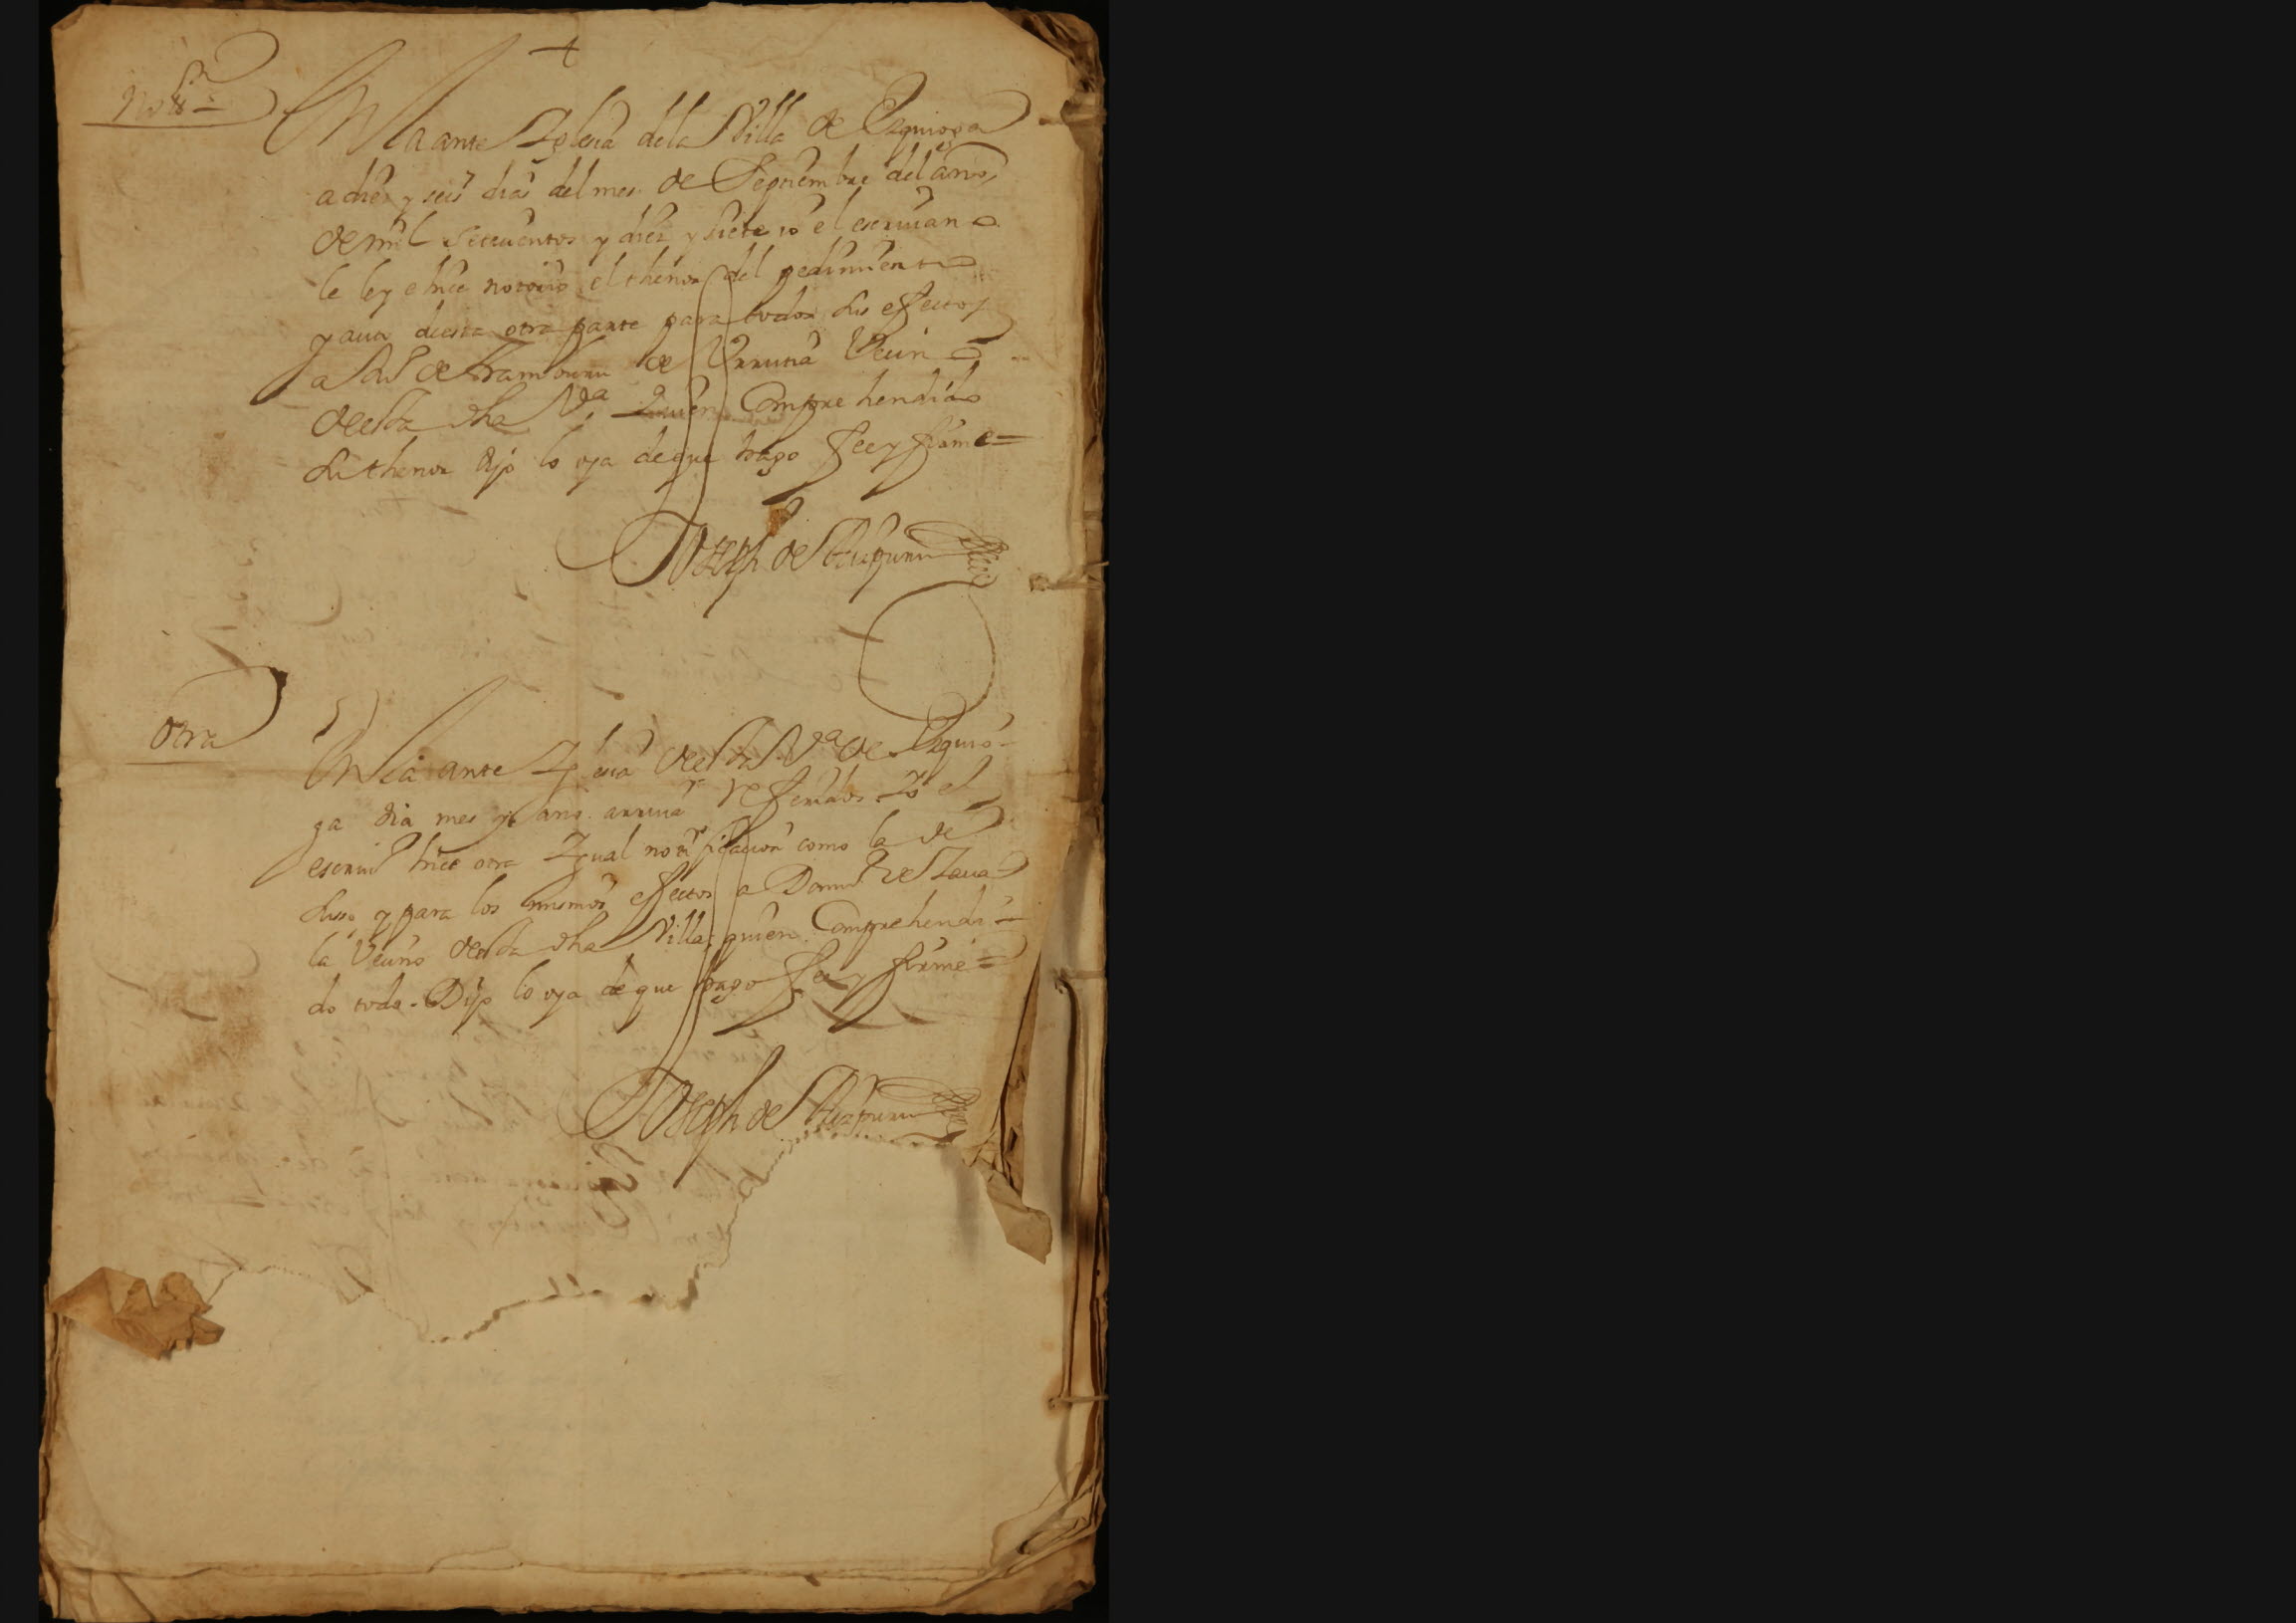 +
Notⁿ
En la ante Iglesia de la Villa de Ezquioga
a diez y seis dias del mes de Septiembre del año
de mil Setecientos y diez y siete yo el escriuano
le ley e hice notorio el thenor del pedimiento
y auto desta otra parte para todos sus efectos
a de Aramburu de Urrutia Vecino
de esta dha Vᵃ Quien Comprehendido
su thenor dijo lo oya de que hago fee y firme =
Joseph de
Otra
En la ante Iglesia de esta Vᵃ de Ezquio-
ga dia mes y año arriua referidos Yo el
escriuº hice otra Igual notificacion como la de
suso y para los mismos efectos a Domº de Zaua
la Vecino desta dha Villa, quien Comprehendi-
do todo. Dijo lo oya de que hago fee y firme =
Joseph de